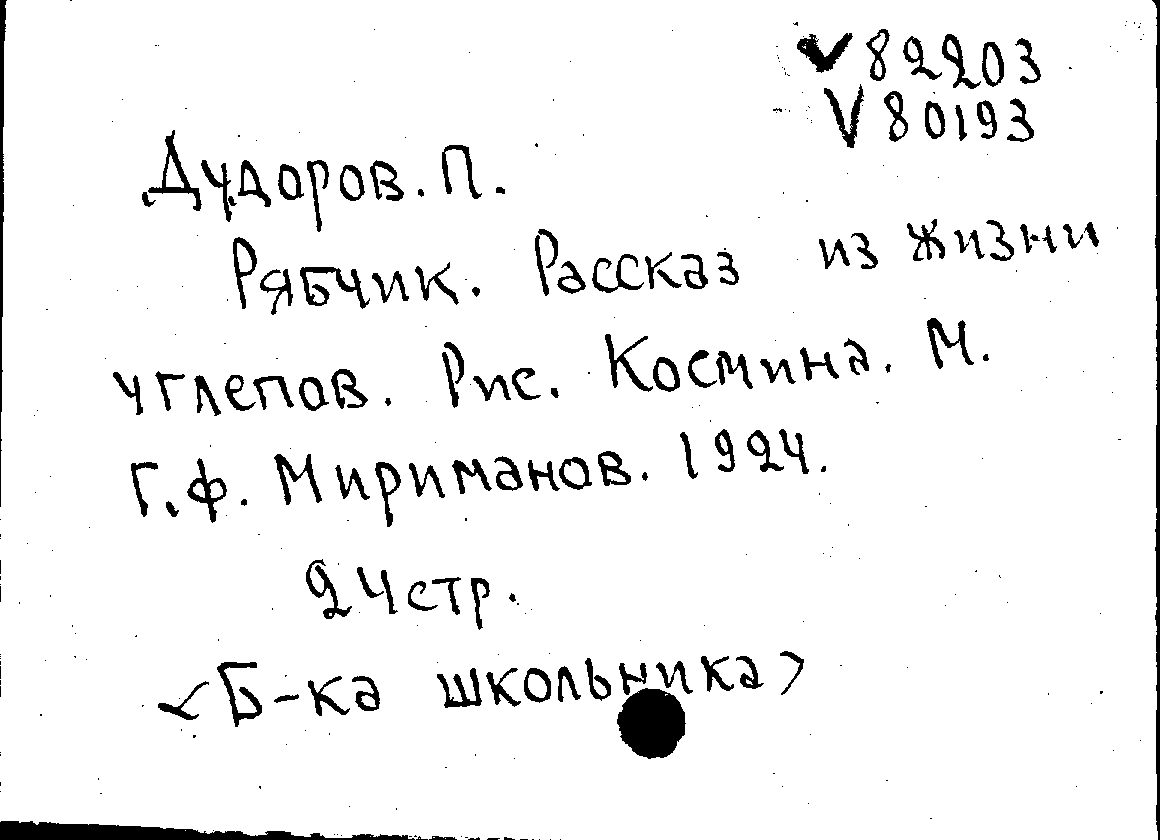 V 82203
V 80193
Дудоров. П.
Рябчик. Рассказ из жизни
углепов. Рис. Космина. М.
Г.Ф. Мириманов. 1924.
24стр.
<Б-ка школьника>